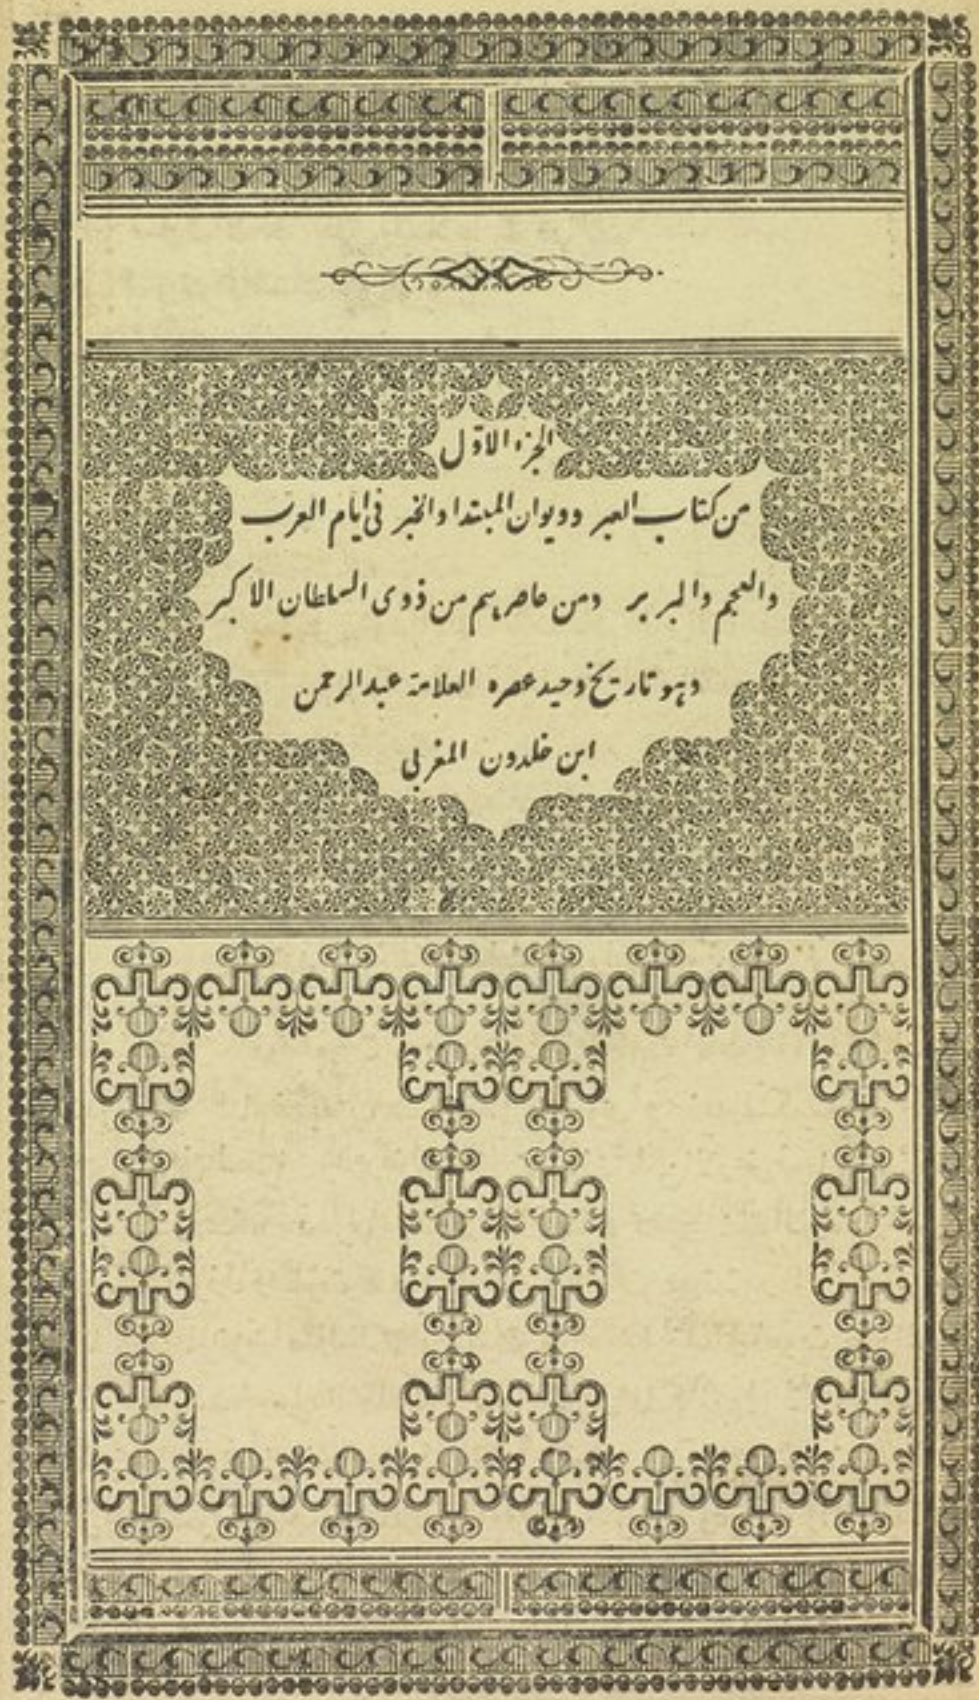 الجزء الاوّل
من كتاب العبر وديوان المبتدا والخبر فى ايام العرب
والعجم والبربر ومن عاصرهم من ذوى السلطان الاكبر
وهو تاريخ وحيد عصره العلامة عبد الرحمن
ابن خلدون المغربى